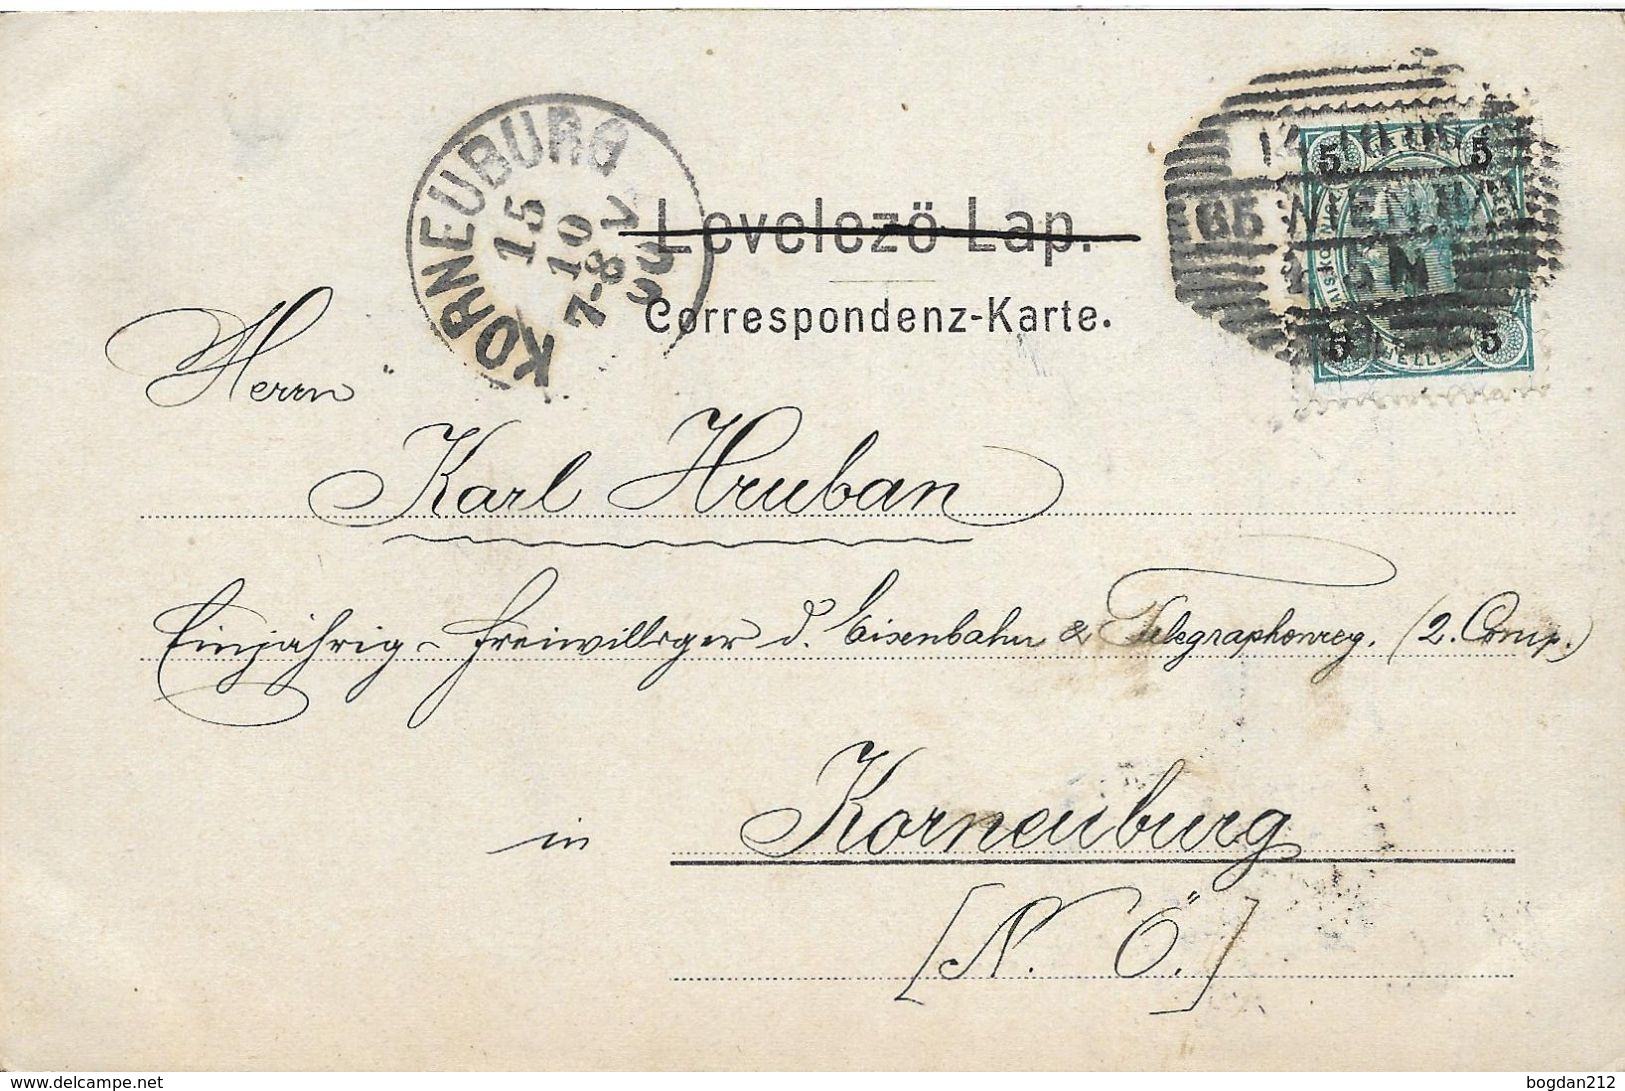 KORNEUBURG
15
10
7-8V
Levelező Lap.
Correspondenz-Karte.
5 5
65 WIEN
5 HELLER 5
Herrn
Karl Hruban
Einjährig-Freiwilliger d. Eisenbahn & Telegraphenreg. (2. Comp.)
in Korneuburg
[N. Ö.]
www.delcampe.net
bogdan212